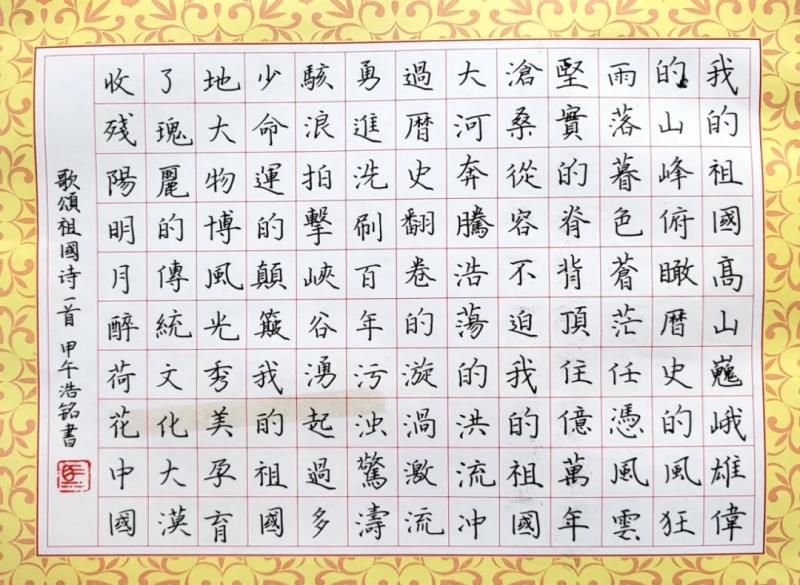 我的祖國高山巍峨雄偉
的山峰俯瞰暦史的風狂
雨落暮色蒼茫任憑風雲
堅實的脊背頂住億萬年
滄桑從容不迫我的祖國
大河奔騰浩蕩的洪流冲
過暦史翻卷的漩渦激流
勇進洗刷百年污浊驚濤
駭浪拍擊峽谷湧起過多
少命運的顛簸我的祖國
地大物博風光秀美孕育
了瑰麗的傳統文化大漠
收殘陽明月醉荷花中國
歌頌祖國诗一首 甲午浩銘書